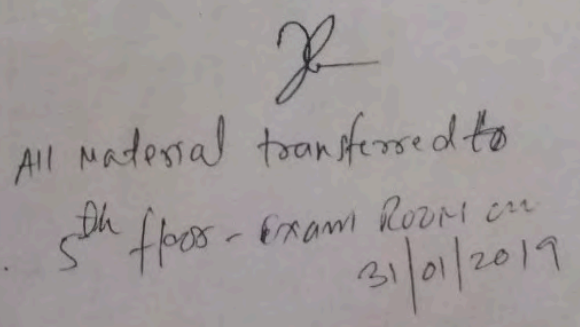 All Material transferred to
5th floor - Exam Room on
31/01/2019